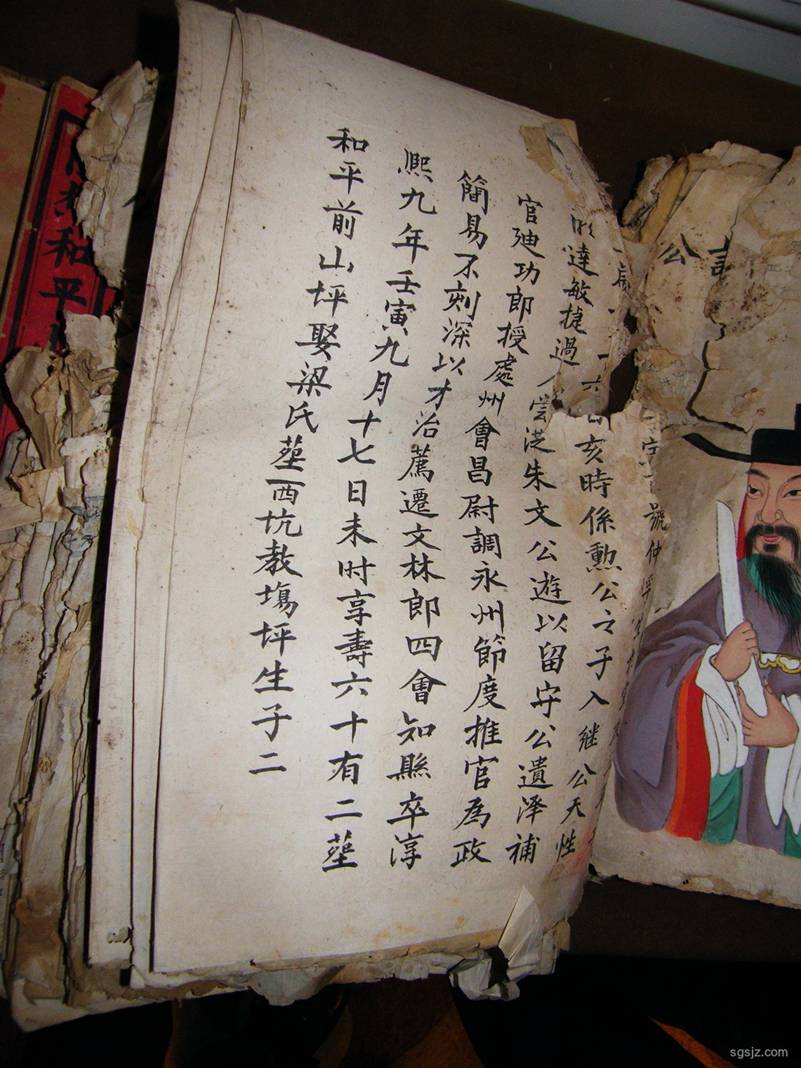 公
號仲
亥時係勲公之子入継公天性
達敏捷過
官廸功郎授處州會昌尉調永州節度推官為政
嘗從朱文公遊以留守公遺泽補
簡易不刻深以才治薦遷文林郎四會知縣卒淳
熈九年壬寅九月十七日未时享壽六十有二塟
和平前山坪娶梁氏塟西坑教塲坪生子二
和平
sgsjz.com